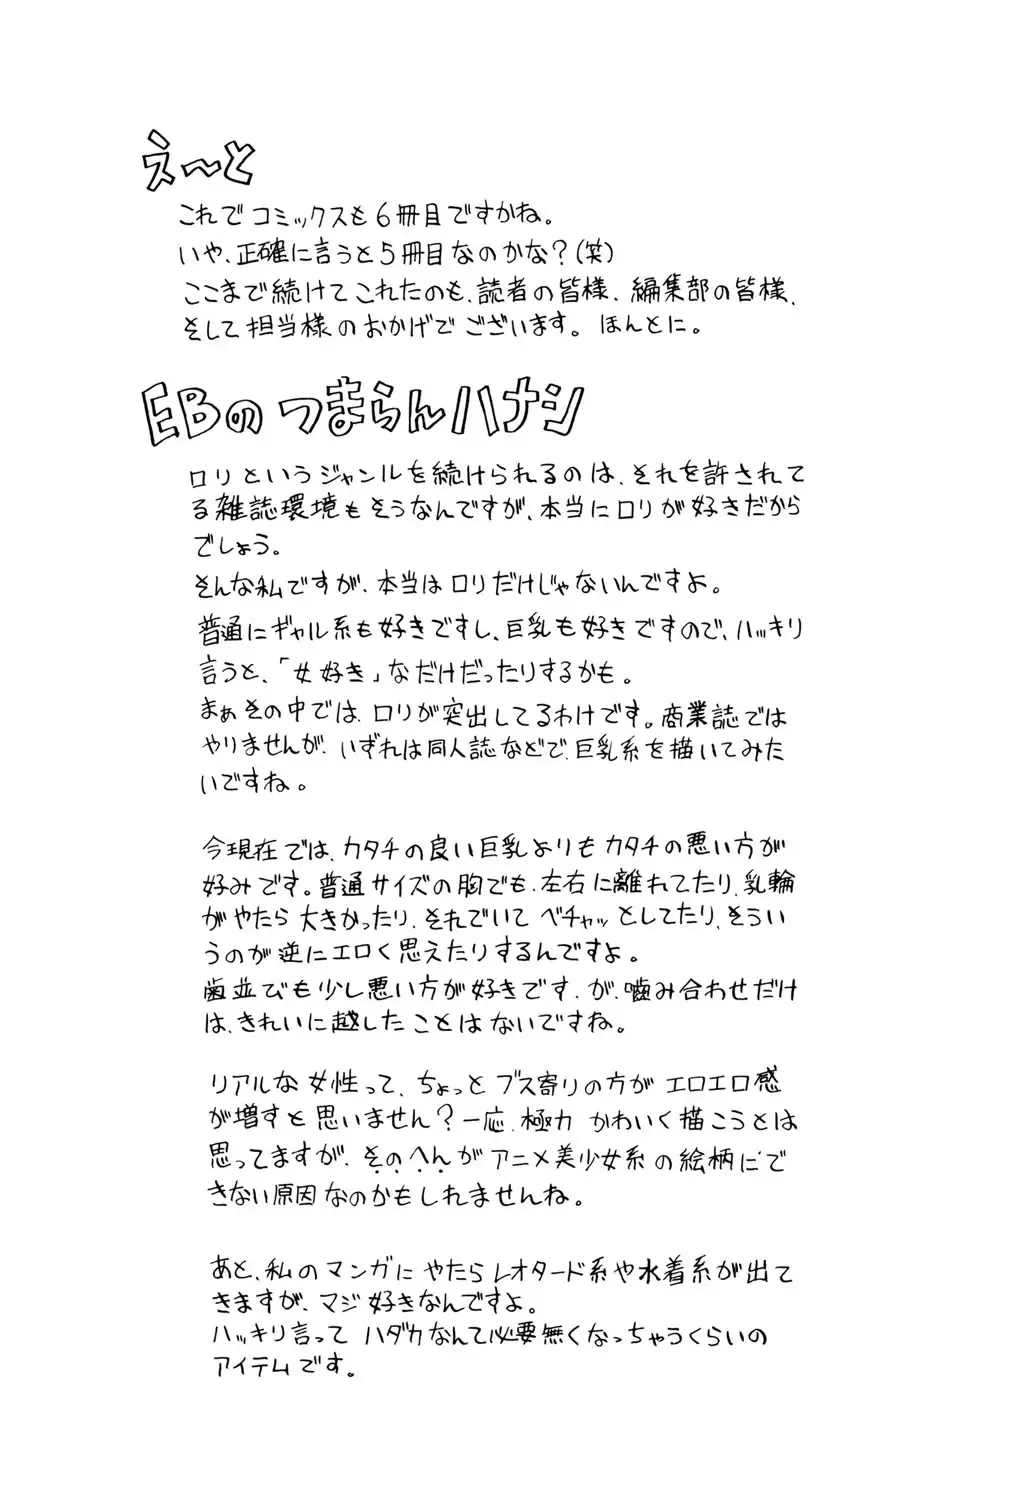 え〜と
これでコミックスも6冊目ですかね。
いや、正確に言うと5冊目なのかな?(笑)
ここまで続けてこれたのも、読者の皆様、編集部の皆様、
そして担当様のおかげでございます。ほんとに。
EBのつまらんハナシ
ロリというジャンルを続けられるのは、それを許されて
る雑誌環境もそうなんですが、本当にロリが好きだから
でしょう。
そんな私ですが、本当はロリだけじゃないんですよ。
普通にギャル系も好きですし、巨乳も好きですので、ハッキリ
言うと、「女好き」なだけだったりするかも。
まぁその中では、ロリが突出してるわけです。商業誌では
やりませんが、いずれは同人誌などで、巨乳系を描いてみた
いですね。
今現在では、カタチの良い巨乳よりもカタチの悪い方が
好みです。普通サイズの胸でも、左右に離れてたり、乳輪
がやたら大きかったり、それでいてベチャッとしてたり、そうい
うのが逆にエロく思えたりするんですよ。
歯並びも少し悪い方が好きです、が、噛み合わせだけ
は、きれいに越したことはないですね。
リアルな女性って、ちょっとブス寄りの方がエロエロ感
が増すと思いません?一応、極力かわいく描こうとは
思ってますが、そのへんがアニメ美少女系の絵柄にで
きない原因なのかもしれませんね。
あと、私のマンガにやたらレオタード系や水着系が出て
きますが、マジ好きなんですよ。
ハッキリ言ってハダカなんて必要無くなっちゃうくらいの
アイテムです。